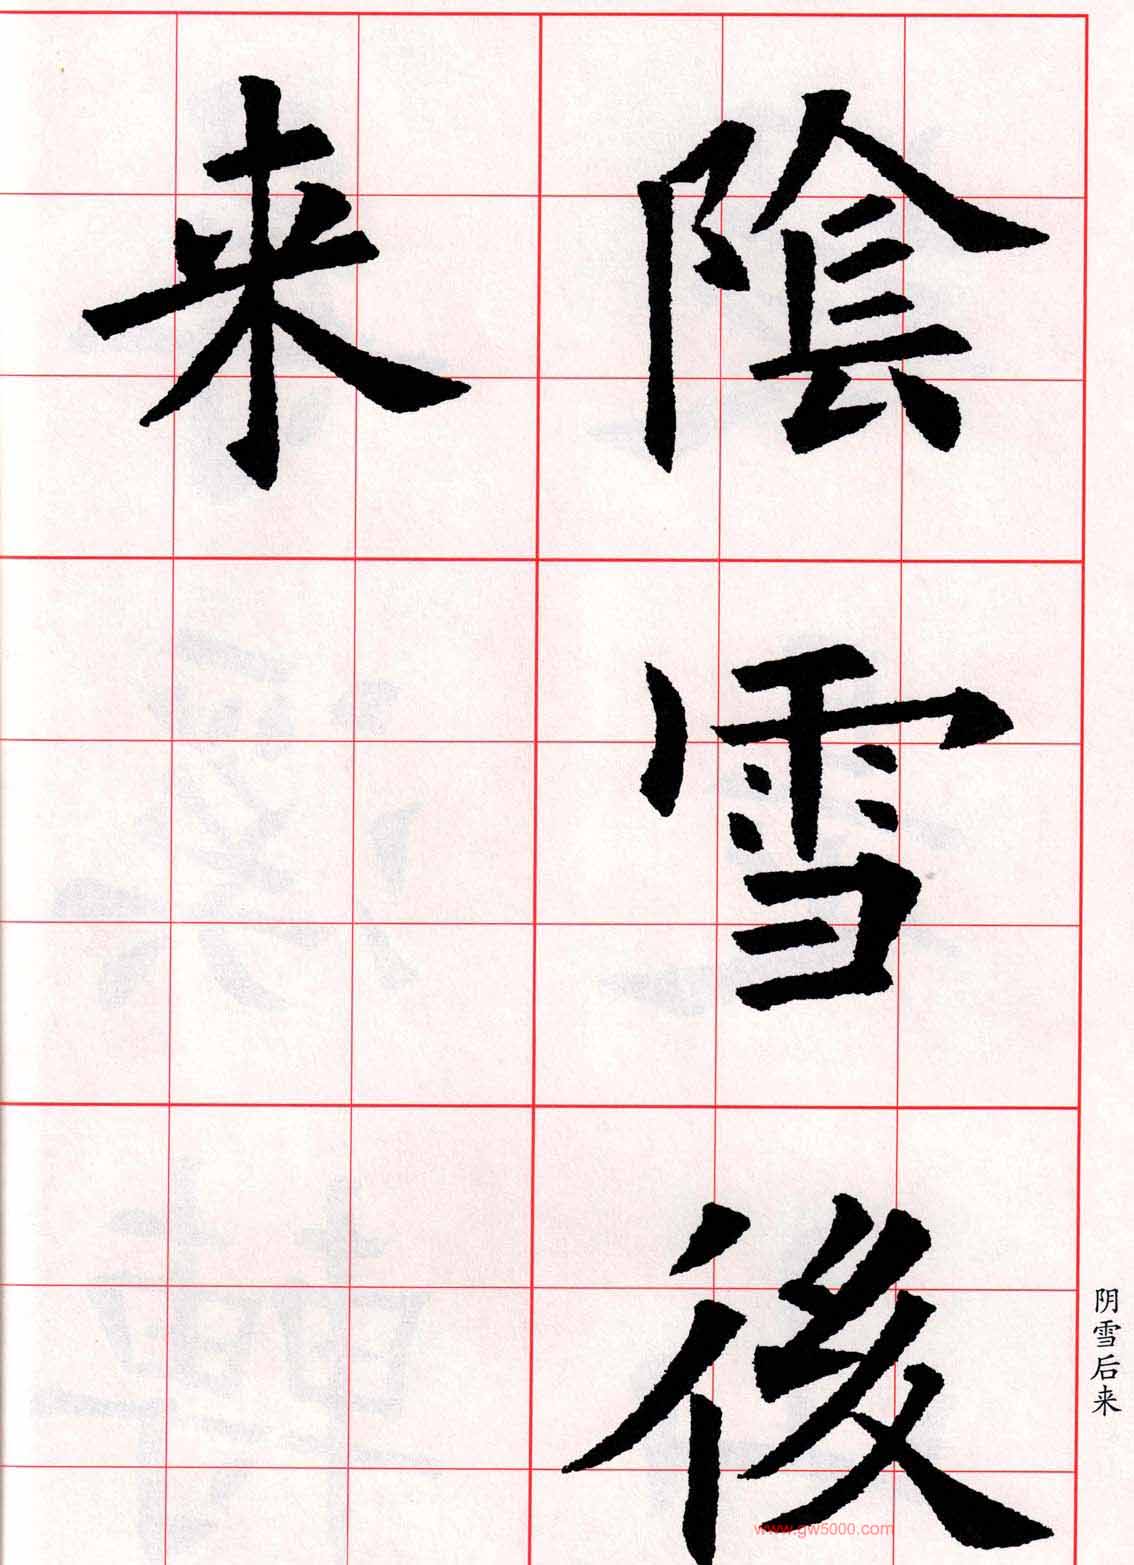 陰雪後
来
阴雪后来
www.gw5000.com